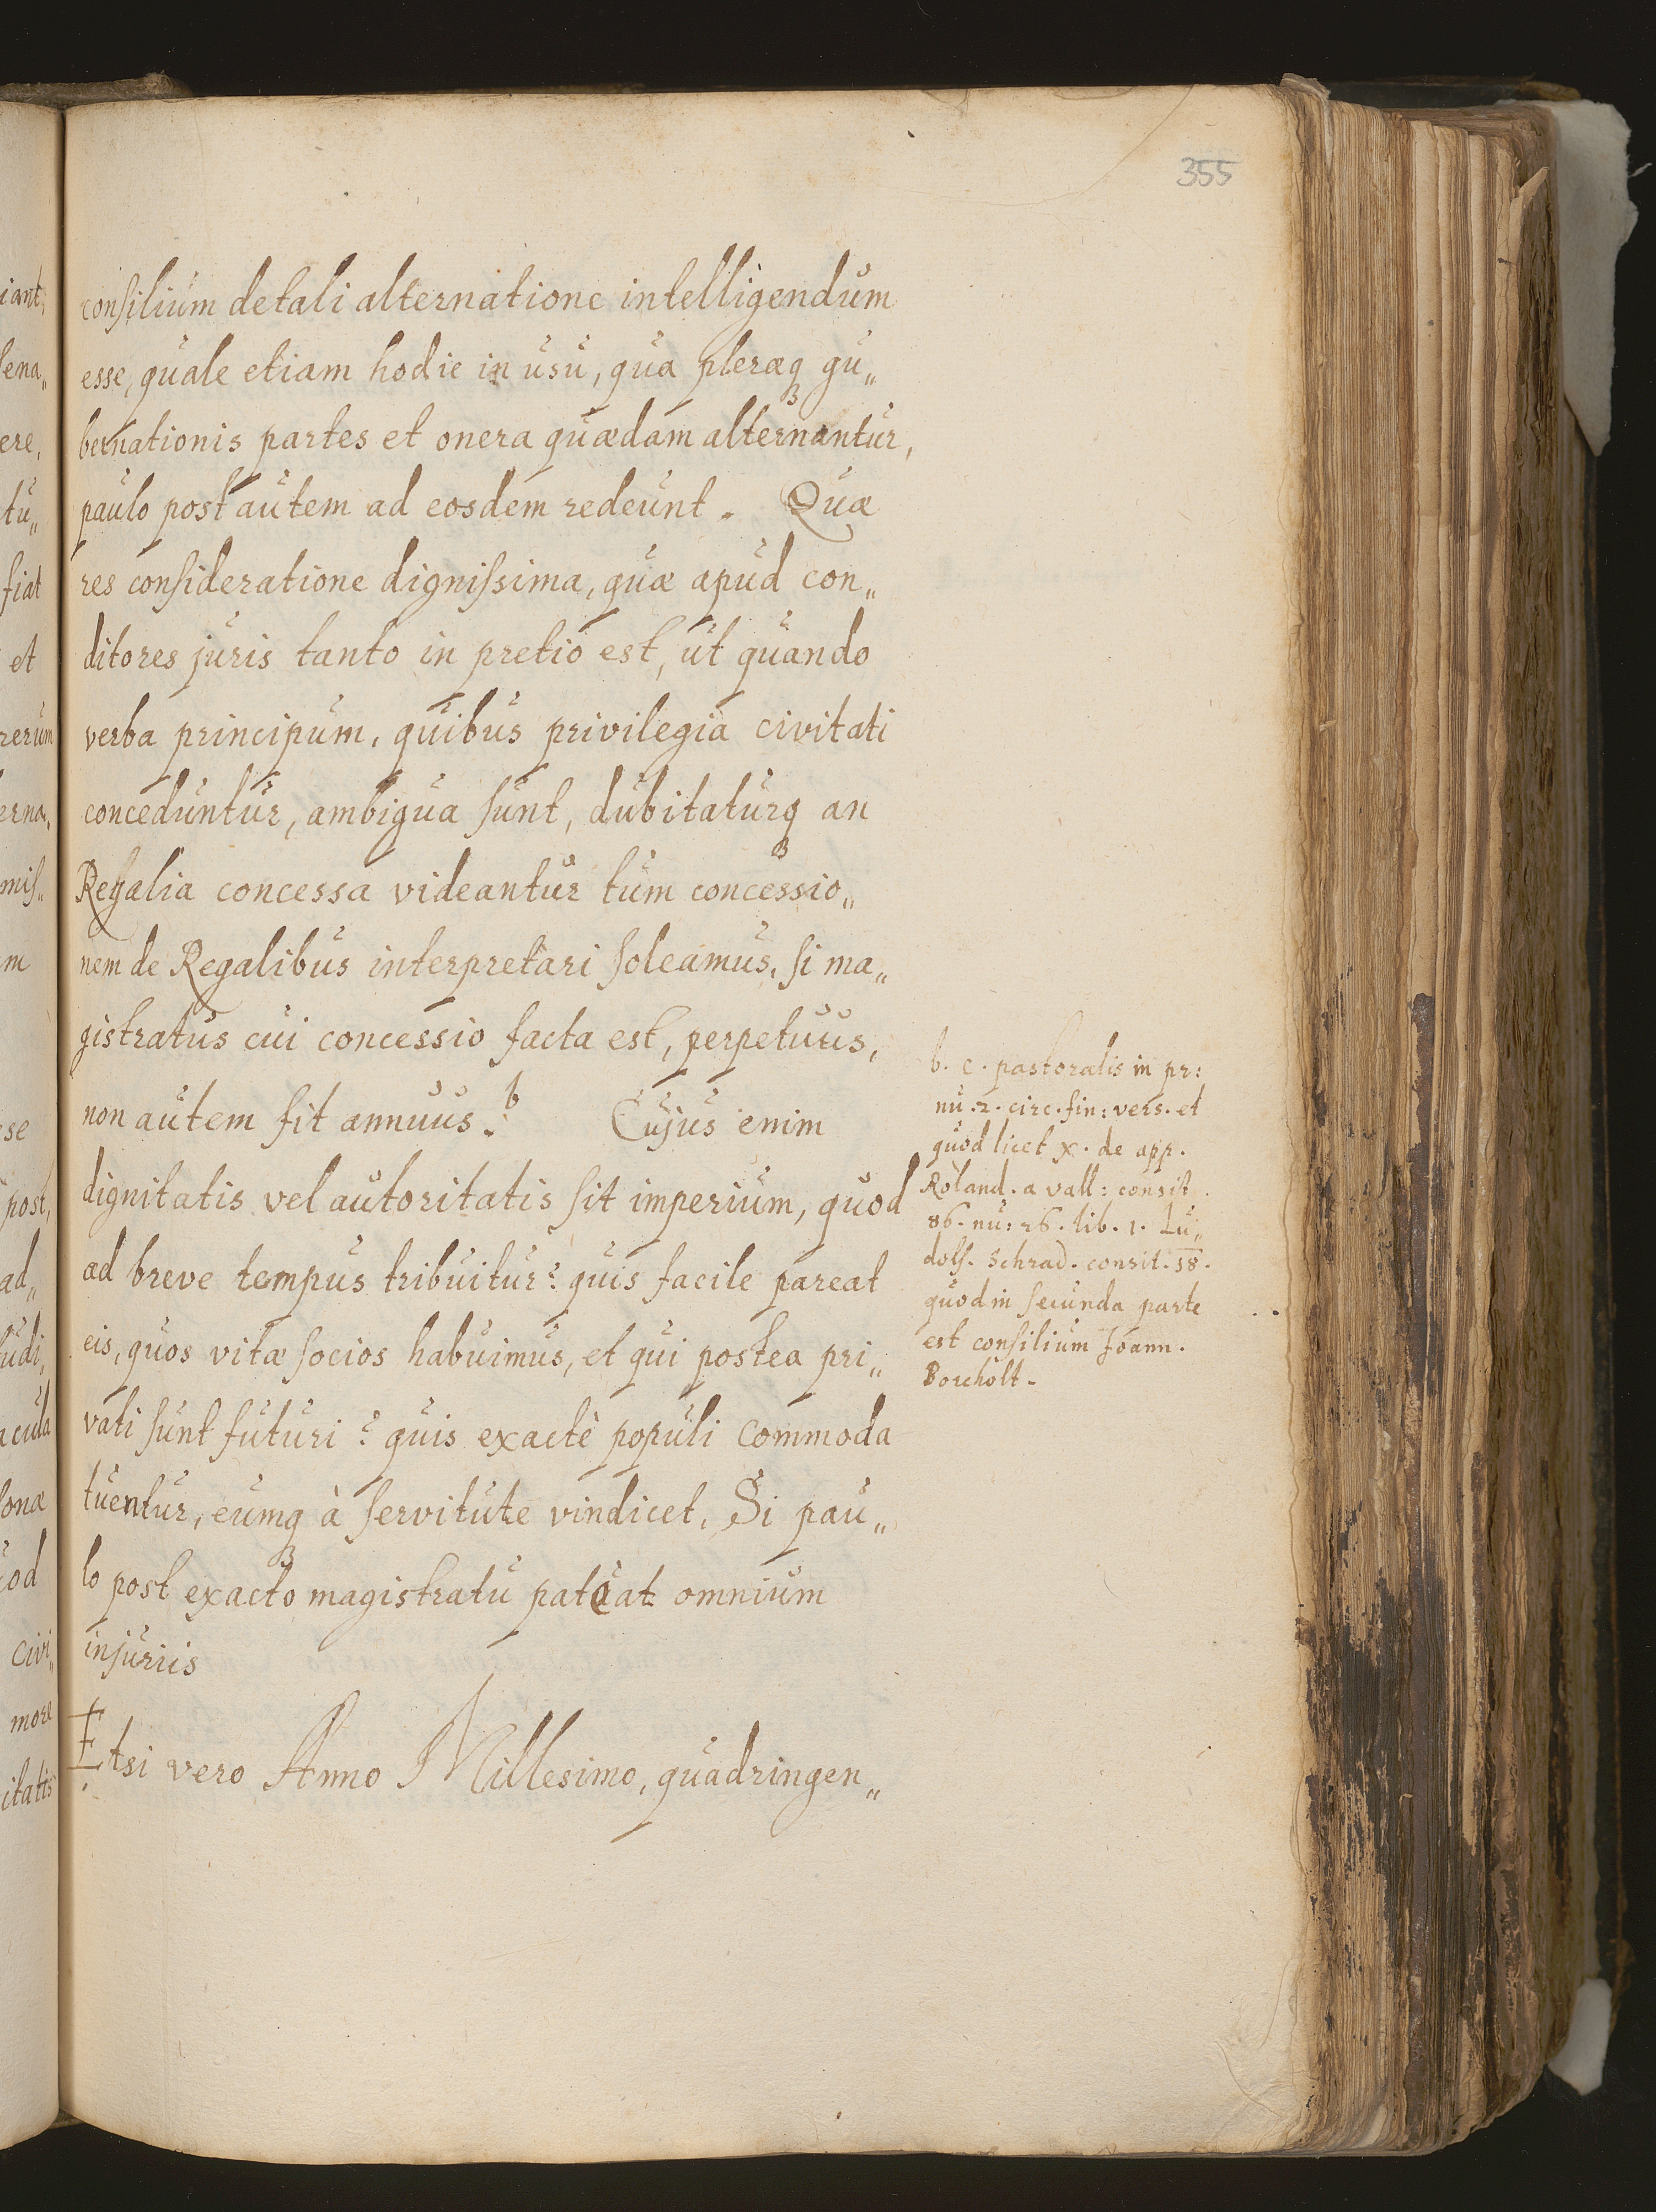 355
consilium de tali alternatione intelligendum
esse, quale etiam hodie in usu, qua pleraeq; gu„
bernationis partes et onera quaedam alternantur,
paulo post autem ad eosdem redeunt. Quae
res consideratione dignissima, quae apud con„
ditores juris tanto in pretio est, ut quando
verba principum, quibus privilegia civitati
conceduntur, ambigua sunt, dubitaturq; an
Regalia concessa videantur tum concessio„
nem de Regalibus interpretari soleamus, si ma„
gistratus cui concessio facta est, perpetuus,
non autem sit annuus. b Cujus enim
dignitatis vel autoritatis sit imperium, quod
ad breve tempus tribuitur? quis facile pareat
eis, quos vitae socios habuimus, et qui postea pri„
vati sunt futuri? quis exactè populi commoda
tuentur, eumq; à servitute vindicet, Si pau„
lo post exacto magistratu pateat omnium
injuriis
Etsi vero Anno Millesimo, quadringen„
b. c. pastoralis in pr:
nu. 2. circ. fin: vers. et
quod licet x. de app.
Roland. a vall: consit.
86. nu: 26. lib. 1. Lu„
dolf. Schrad. consit. 58.
quod in secunda parte
est consilium Joann.
Borcholt.